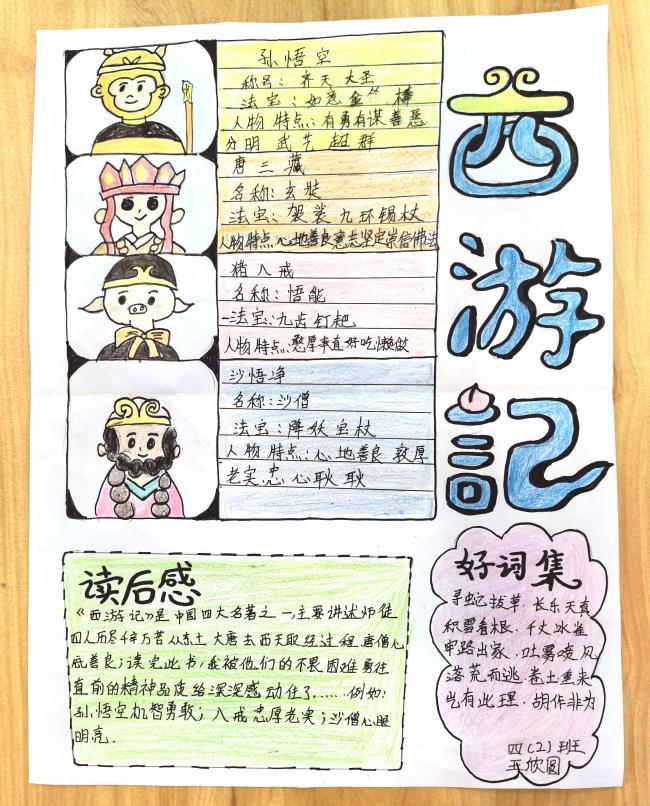 孙悟空
称号：齐天大圣
法宝：如意金箍棒
人物特点：有勇有谋善恶
分明武艺超群
唐三藏
名称：玄奘
法宝：袈裟九环锡杖
人物特点：心地善良意志坚定崇信佛法
猪八戒
名称：悟能
法宝：九齿钉耙
人物特点：憨厚率直好吃懒做
沙悟净
名称：沙僧
法宝：降妖宝杖
人物特点：心地善良敦厚
老实忠心耿耿
西游記
读后感
《西游记》是中国四大名著之一,主要讲述师徒
四人历尽千辛万苦从东土大唐去西天取经过程.唐僧心
底善良；读完此书,我被他们的不畏困难勇往
直前的精神品质给深深感动住了......例如:
孙悟空机智勇敢；八戒忠厚老实；沙僧心眼
明亮.
好词集
寻蛇拔草.长东天真
积雪看根.千丈水雀
牢路出家.吐雾喷风
落荒而逃.卷土重来
岂有此理.胡作非为
四(2)班
王欣圆